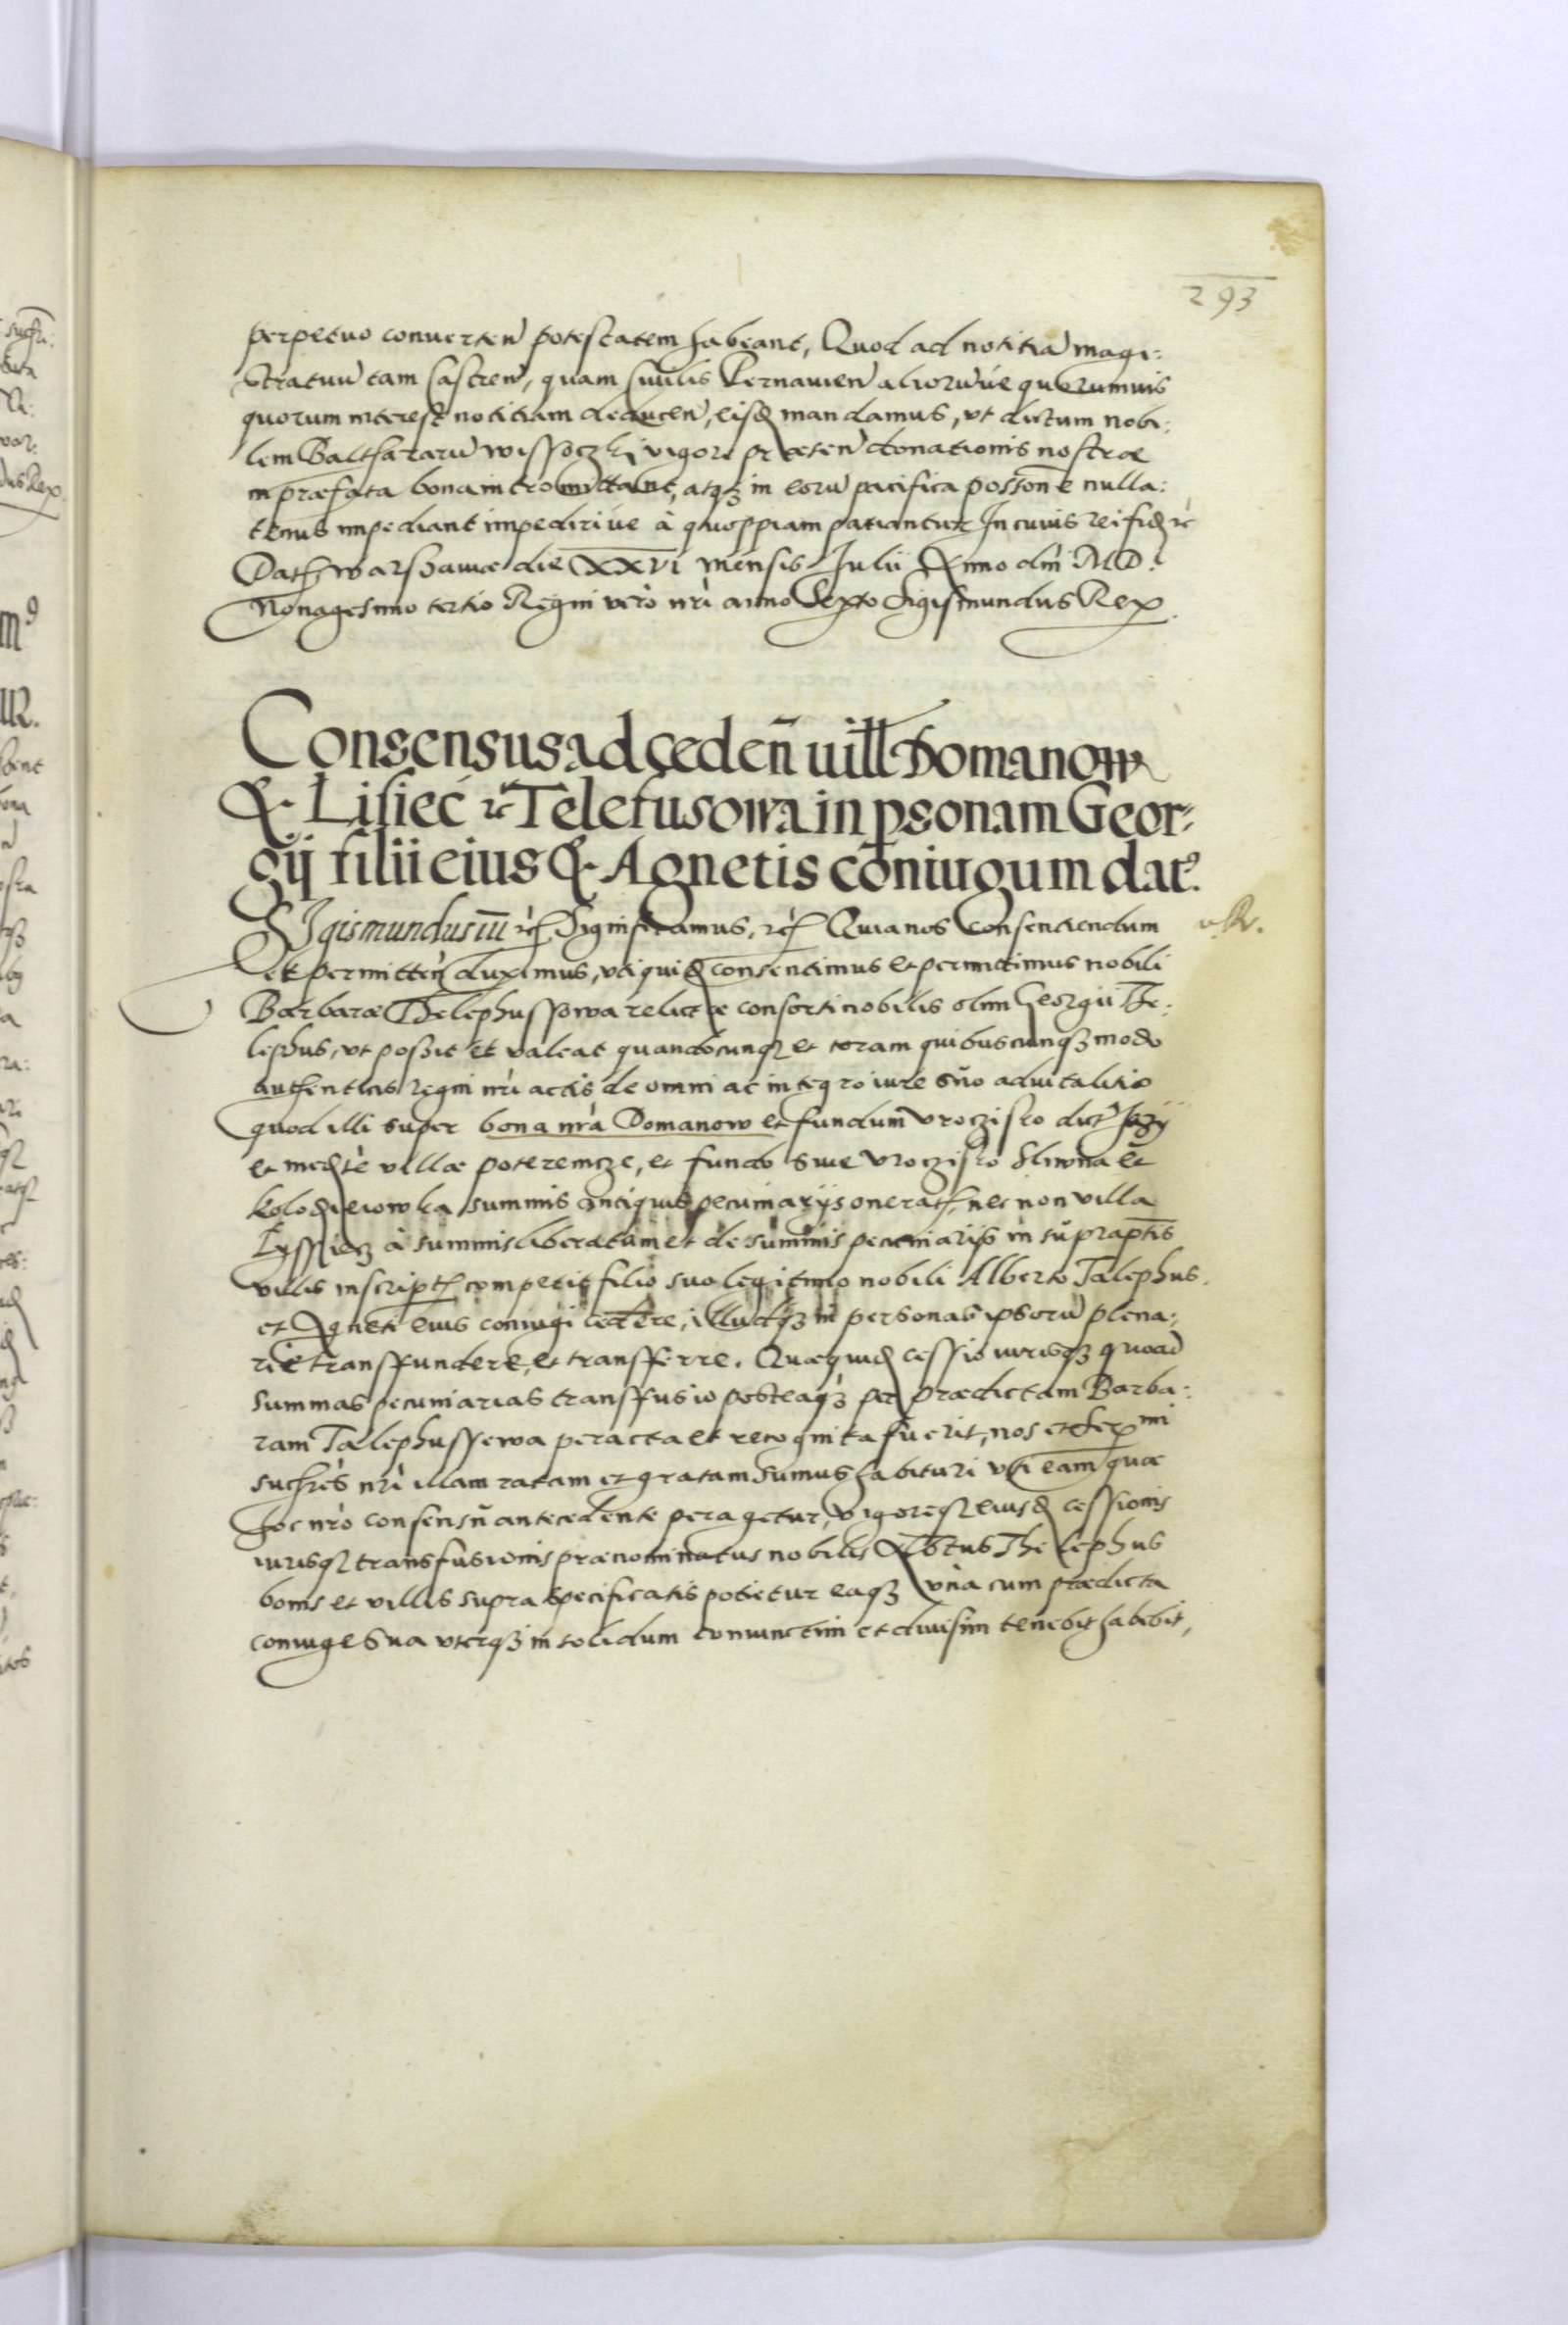 293
perpetuo conuerten̄ potestatem habeant, Quod ad notitiā magi:
stratuū tam Castren̄, quam Ciuilis Pernauien̄ aliorūue quorumuis
quorum interest notitiam deducen̄, eisd mandamus, vt dictum nobi:
lem Balthazarū wissoczki vigore praesen̄ donationis nostrae
in praefata bona intromittant, atqз in eorū pacifica possone nulla:
tenus impediant impediriue à quoppiam patiantur In cuius rei fid rc
Dat warshauiae die XXVI mensis Julii Anno dni MD.
Nonagesimo tertio Regni vero nri anno Sexto Sigismundus Rex.
Consensus ad ceden̄ uill Domanow
& Lisiec rc Telefusowa in psonam Geor:
gij filii eius & Agnetis coniugum dat.
Sigismundus iii rc Significamus, rc Quia nos Consentiendum
et permitten̄ duximus, vti quid consentimus et permittimus nobili
Barbarae Thelephussowa relictae consorti nobilis olim Georgii The:
lephus, vt possit et valeat quandocunqз et coram quibuscunqз modo
authenticis regni nri actis de omni ac integro iure suo aduitalitio
quod illi super bona nra Domanow et fundum vroczisko dict
et villae poteremcze, et fundo siue vroczisko Sliwna et
kolodieiowka summis antiquis pecuniarijs onerat, nec non villa
Lyssiecz à summis liberatam et de summis pecuniariis in supraptis
villis inscript competit filio suo legitimo nobili Alberto Talephus.
et Agneti eius coniugi cedere, illudqз in personas ipsorū plena:
rie transfundere, et transferre. Quaequid cessio iurisqз quoad
summas pecuniarias transfusio posteaqз per praedictam Barba:
ram Talephussewa peracta et recognita fuerit, nos et Ser mi
succres nri illam ratam et gratam sumus habituri vti eam quae
hoc nro consensu antecedente peragetur, vigoreqз eiusd cessionis
iurisqз transfusionis praenominatus nobilis Albtus Thelephus
bonis et villis supra specificatis potietur eaqз vna cum praedicta
coniuge sua vterqз in solidum coniunctim et diuisim tenebit habebit,